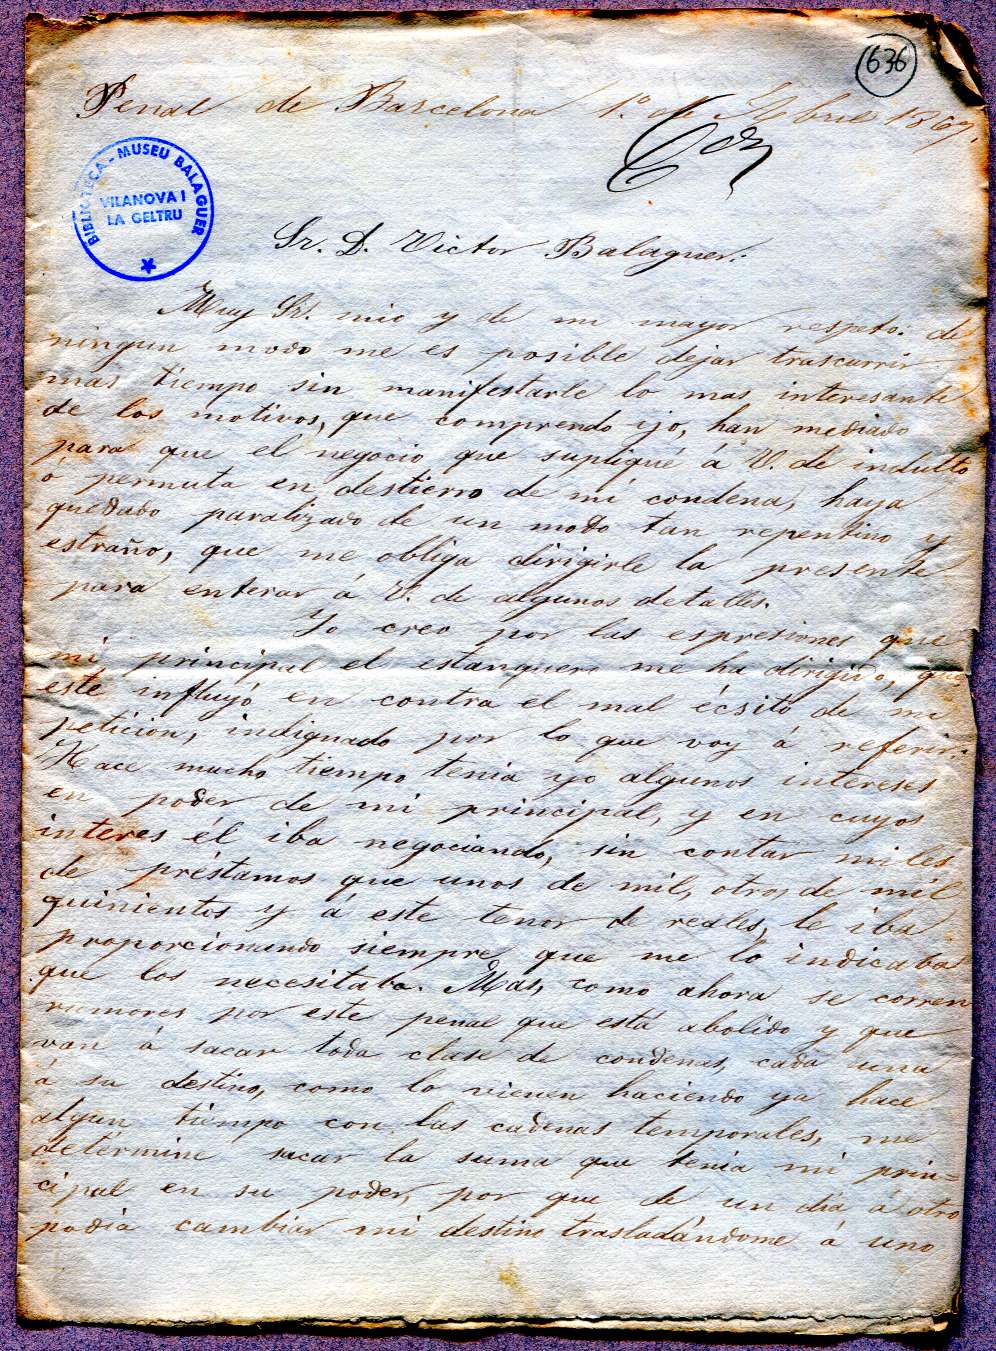 636
Penal de Barcelona 1º de Abril 1869.
BIBLIOTECA - MUSEU BALAGUER
VILANOVA I
LA GELTRU
Sr. D. Victor Balaguer.
Muy Sr. mio y de mi mayor respeto: de
ningun modo me es posible dejar trascurrir
mas tiempo sin manifestarle lo mas interesante
de los motivos, que comprendo yo, han mediado
para que el negocio que supliqué á V. de indulto
ó permuta en destierro de mi condena, haya
quedado paralizado de un modo tan repentino y
estraño, que me obliga dirigirle la presente
para enterar á V. de algunos detalles.
Yo creo por las espresiones que
mi principal el estanquero me ha dirigido, que
este influyó en contra el mal écsito de mi
peticion, indignado por lo que voy á referir:
Hace mucho tiempo tenia yo algunos intereses
en poder de mi principal, y en cuyos
interes él iba negociando, sin contar miles
de préstamos que unos de mil, otros de mil
quinientos y á este tenor de reales, le iba
proporcionando siempre que me lo indicaba
que los necesitaba. Mas, como ahora se corren
rumores por este penal que está abolido y que
van á sacar toda clase de condenas, cada una
á su destino, como lo vienen haciendo ya hace
algun tiempo con las cadenas temporales, me
determiné sacar la suma que tenia mi prin=
cipal en su poder, por que de un dia á otro
podia cambiar mi destino trasladándome á uno